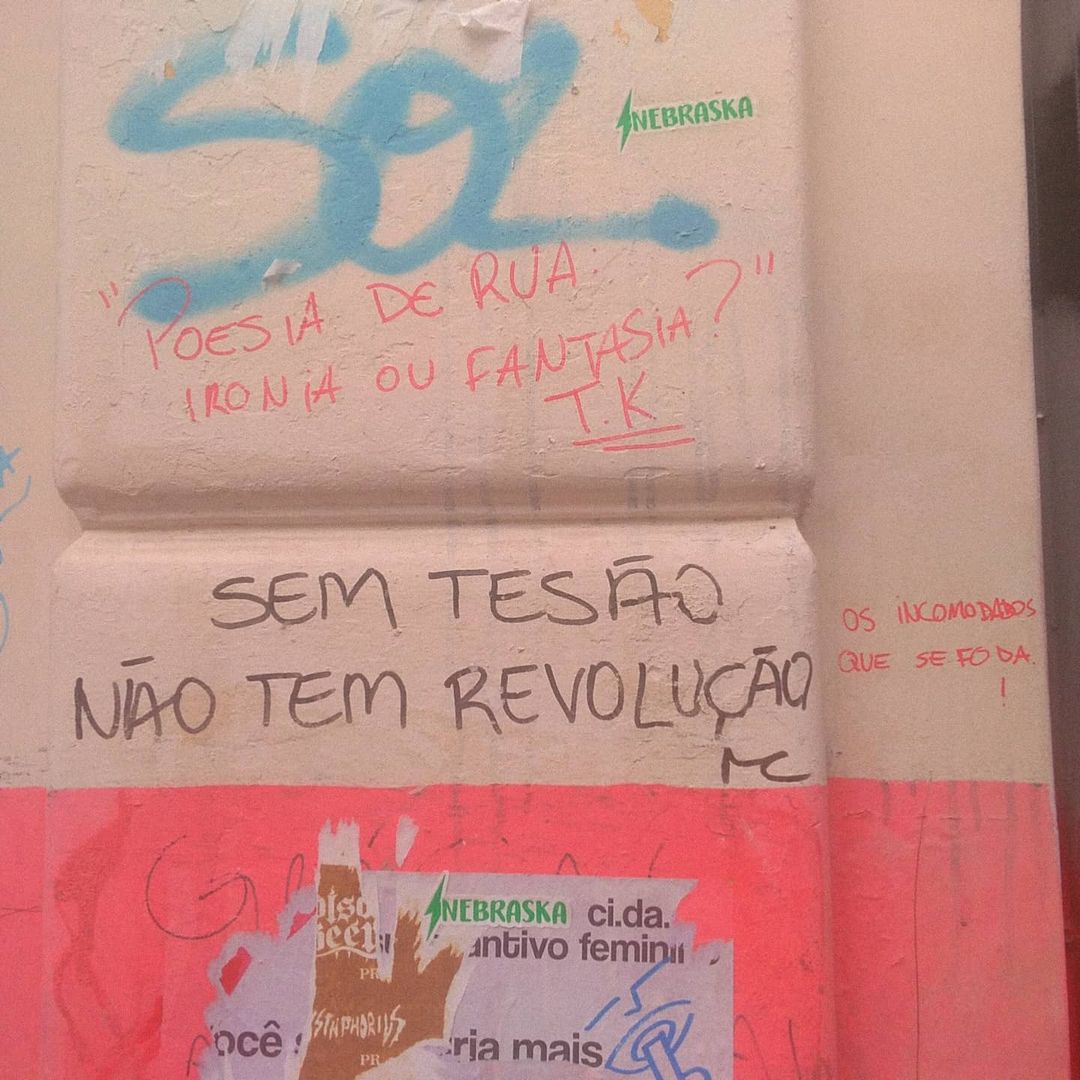 SOL
NEBRASKA
"POESIA DE RUA:
IRONIA OU FANTASIA?"
T.K
SEM TESÃO
NÃO TEM REVOLUÇÃO
MC
OS INCOMODADOS
QUE SE FODA.
!
NEBRASKA
ci.da.
antivo femini
PR
você
ria mais
PR